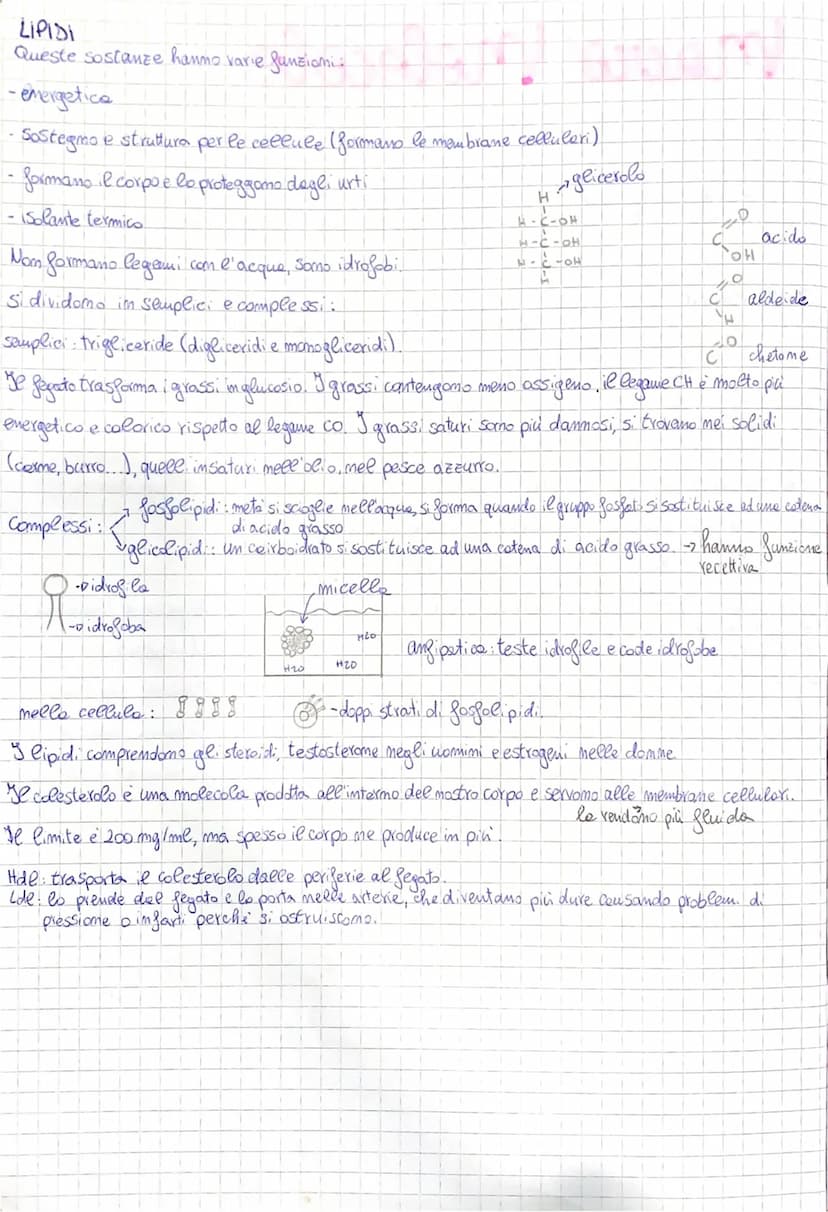 LIPIDI
Queste sostanze hanno varie funzioni:
- energetica
- sostegno e struttura per le cellule (formano le membrane cellulari)
- formano il corpo e lo proteggono dagli urti
→ glicerolo
- isolante termico
H
H-C-OH
H-C-OH
H-C-OH
H
C O OH acido
Non formano legami con l'acqua, sono idrofobi.
si dividono in semplici e complessi:
C O H aldeide
semplici: trigliceride (digliceridi e monogliceridi).
C O chetone
Il fegato trasforma i grassi in glucosio. I grassi contengono meno ossigeno, il legame CH è molto più
energetico e calorico rispetto al legame CO. I grassi saturi sono più dannosi, si trovano nei solidi
(carne, burro...), quelli insaturi nell'olio, nel pesce azzurro.
Complessi:
fosfolipidi: metà si scioglie nell'acqua, si forma quando il gruppo fosfat si sostituisce ad una catena
di acido grasso
glicolipidi: un carboidrato si sostituisce ad una catena di acido grasso → hanno funzione
recettiva
→ idrofila
→ idrofoba
micelle
H2O
H2O
H2O
anfipatica: teste idrofile e code idrofobe
nella cellula:
- doppi strati di fosfolipidi.
I lipidi comprendono gli steroidi, testosterone negli uomini e estrogeni nelle donne
Il colesterolo è una molecola prodtta all'interno del nostro corpo e servono alle membrane cellulari.
la rendono più fluida
Il limite è 200 mg/ml, ma spesso il corpo ne produce in più.
Hdl: trasporta il colesterolo dalle periferie al fegato.
Ldl: lo prende dal fegato e lo porta nelle arterie, che diventano più dure causando problemi di
pressione o infarti perché si ostruiscono.